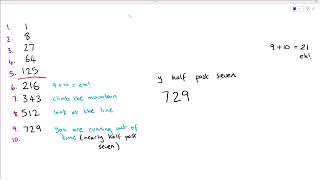 1. 1
2. 8
3. 27
4. 64
5. 125
6. 216 9+10 = eh!
7. 343 climb the mountain
8. 512 look at the line
9. 729 you are running out of
time (nearly half past
seven)
10.
9+10 = 21
eh!
y half past seven
729